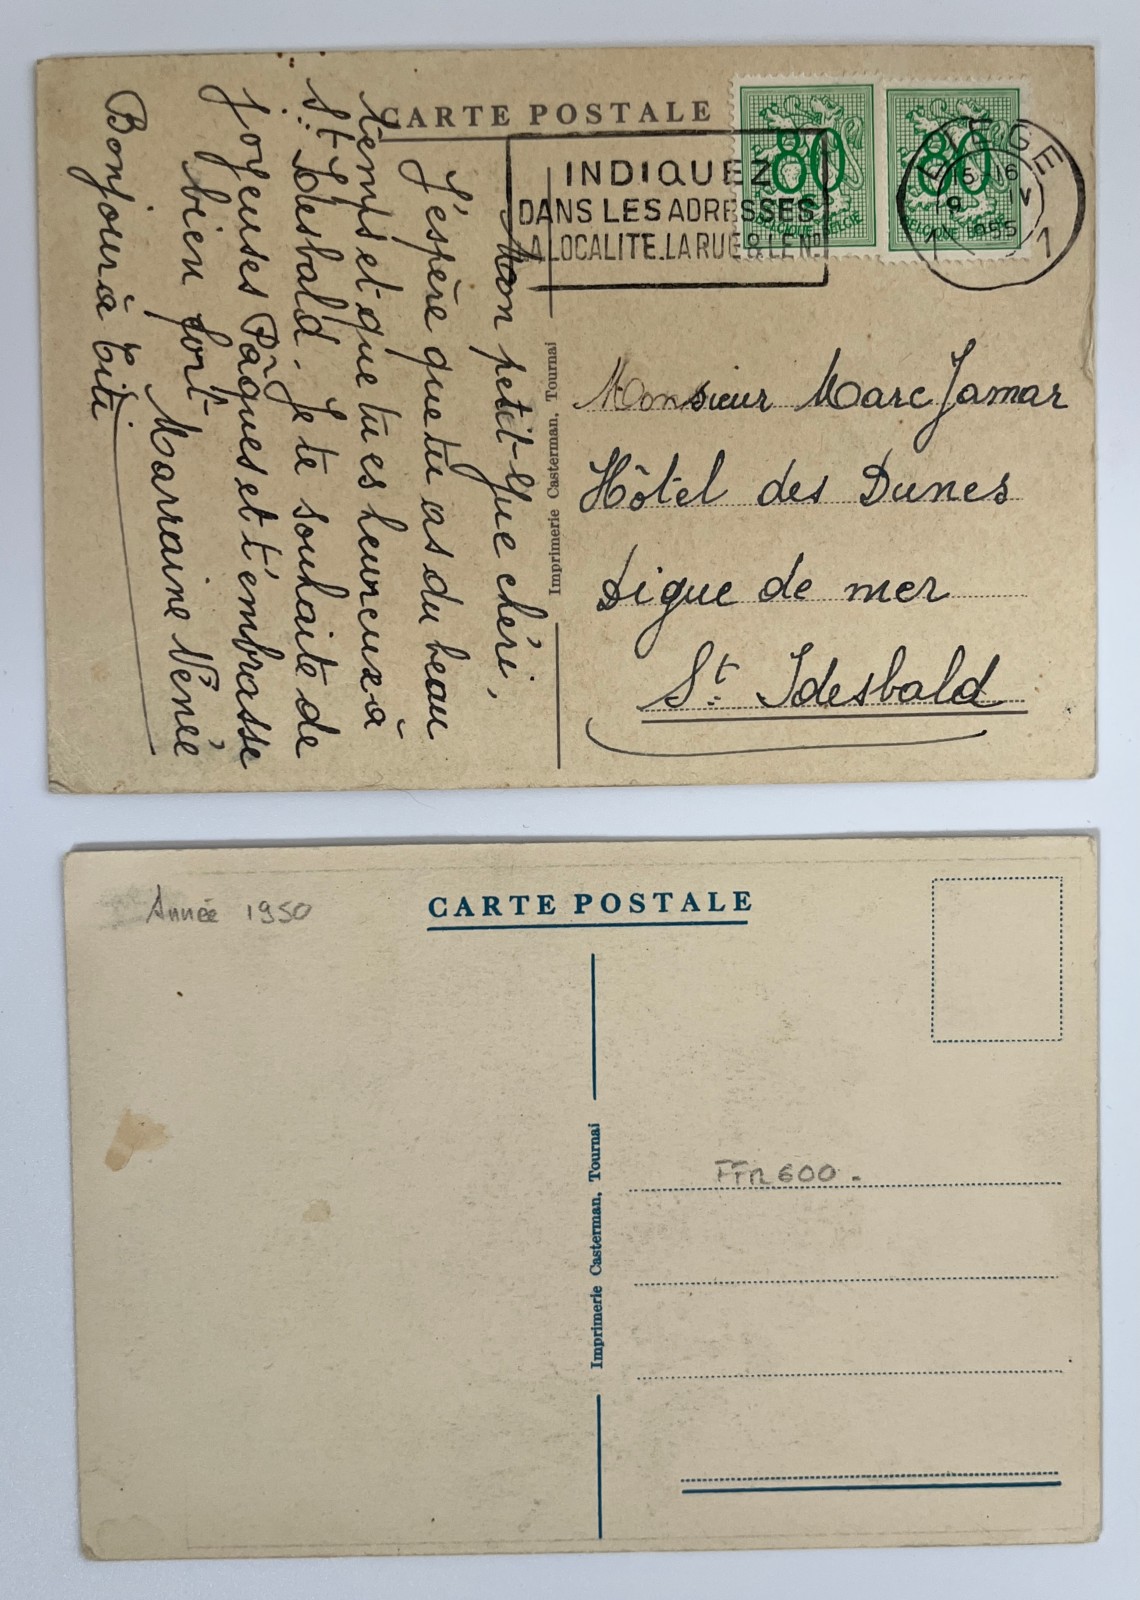 CARTE POSTALE
INDIQUEZ
DANS LES ADRESSES
LA LOCALITE.LA RUE & LE No
80
BELGIQUE-BELGIE
80
BELGIQUE-BELGIE
LIÈGE
15-16
19 IV
1955
1 1
Mon petit Gue chéri,
J'espère que tu as du beau
temps et que tu es heureux à
St. Idesbald. Je te souhaite de
joyeuses Pâques et t'embrasse
bien fort
Marraine Nénée
Bonjour à Titi
Imprimerie Casterman, Tournai
Monsieur Marc Jamar
Hôtel des Dunes
Digue de mer
St. Idesbald
Année 1950
CARTE POSTALE
Imprimerie Casterman, Tournai
FFR 600.-